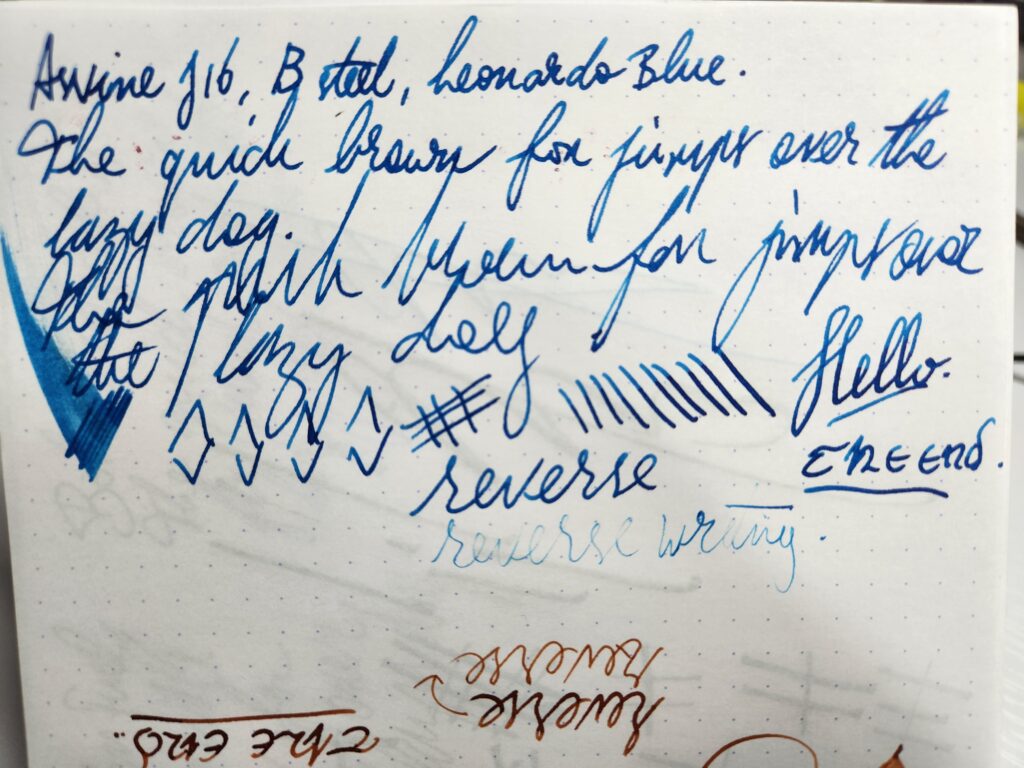 Asvine J16, B steel, Leonardo Blue.
The quick brown fox jumps over the
lazy dog.
The quick brown fox jumps over
the lazy dog
Hello.
reverse
THE END.
reverse writing.
reverse
reverse
THE END..